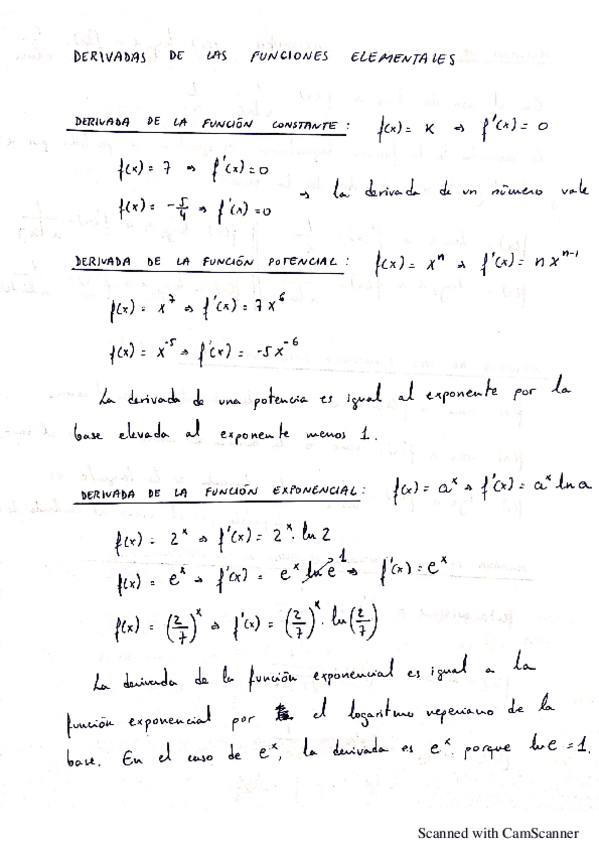 DERIVADAS DE LAS FUNCIONES ELEMENTALES
DERIVADA DE LA FUNCIÓN CONSTANTE: f(x) = K ⇒ f'(x) = 0
f(x) = 7 ⇒ f'(x) = 0
f(x) = -5/4 ⇒ f'(x) = 0 ⇒ La derivada de un número vale
DERIVADA DE LA FUNCIÓN POTENCIAL: f(x) = xⁿ ⇒ f'(x) = n xⁿ⁻¹
f(x) = x⁷ ⇒ f'(x) = 7x⁶
f(x) = x⁻⁵ ⇒ f'(x) = -5x⁻⁶
La derivada de una potencia es igual al exponente por la
base elevada al exponente menos 1.
DERIVADA DE LA FUNCIÓN EXPONENCIAL: f(x) = aˣ ⇒ f'(x) = aˣ ln a
f(x) = 2ˣ ⇒ f'(x) = 2ˣ · ln 2
f(x) = eˣ ⇒ f'(x) = eˣ ln e 1 ⇒ f'(x) = eˣ
f(x) = (2/7)ˣ ⇒ f'(x) = (2/7)ˣ · ln(2/7)
La derivada de la función exponencial es igual a la
función exponencial por el logaritmo neperiano de la
base. En el caso de eˣ, la derivada es eˣ porque ln e = 1.
Scanned with CamScanner